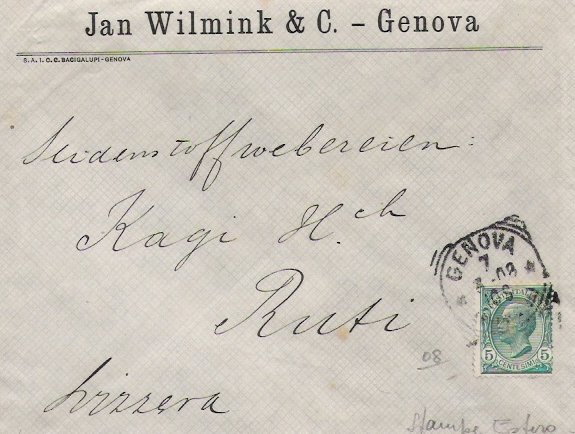 Jan Wilmink & C. – Genova
S. A. I. C. C. BACIGALUPI - GENOVA
Seidenstoffwebereien:
Kagi H.ch
Ruti
Svizzera
GENOVA
7
-08
5 CENTESIMI 5
08
Stampe Estero